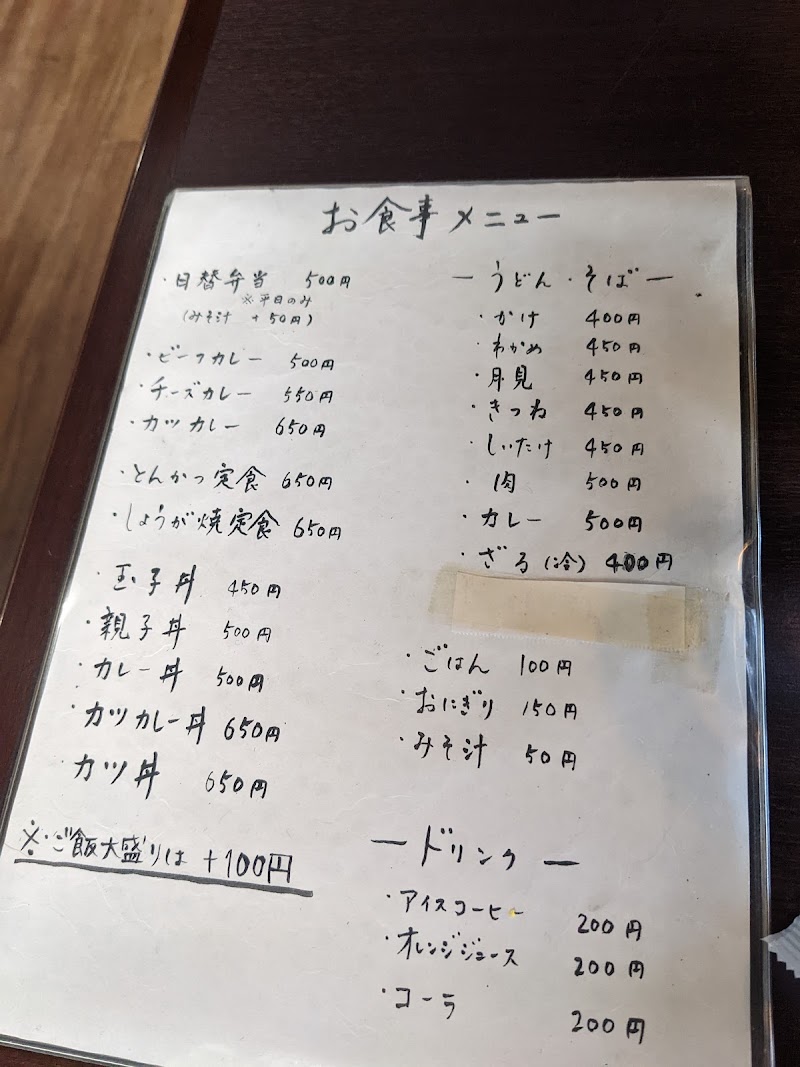 お食事メニュー
・日替弁当 500円
※平日のみ
(みそ汁 +50円)
・ビーフカレー 500円
・チーズカレー 550円
・カツカレー 650円
・とんかつ定食 650円
・しょうが焼定食 650円
・玉子丼 450円
・親子丼 500円
・カレー丼 500円
・カツカレー丼 650円
・カツ丼 650円
※・ご飯大盛りは +100円
ーうどん・そばー
・かけ 400円
・わかめ 450円
・月見 450円
・きつね 450円
・しいたけ 450円
・肉 500円
・カレー 500円
・ざる(冷) 400円
・ごはん 100円
・おにぎり 150円
・みそ汁 50円
ードリンクー
・アイスコーヒー 200円
・オレンジジュース 200円
・コーラ 200円